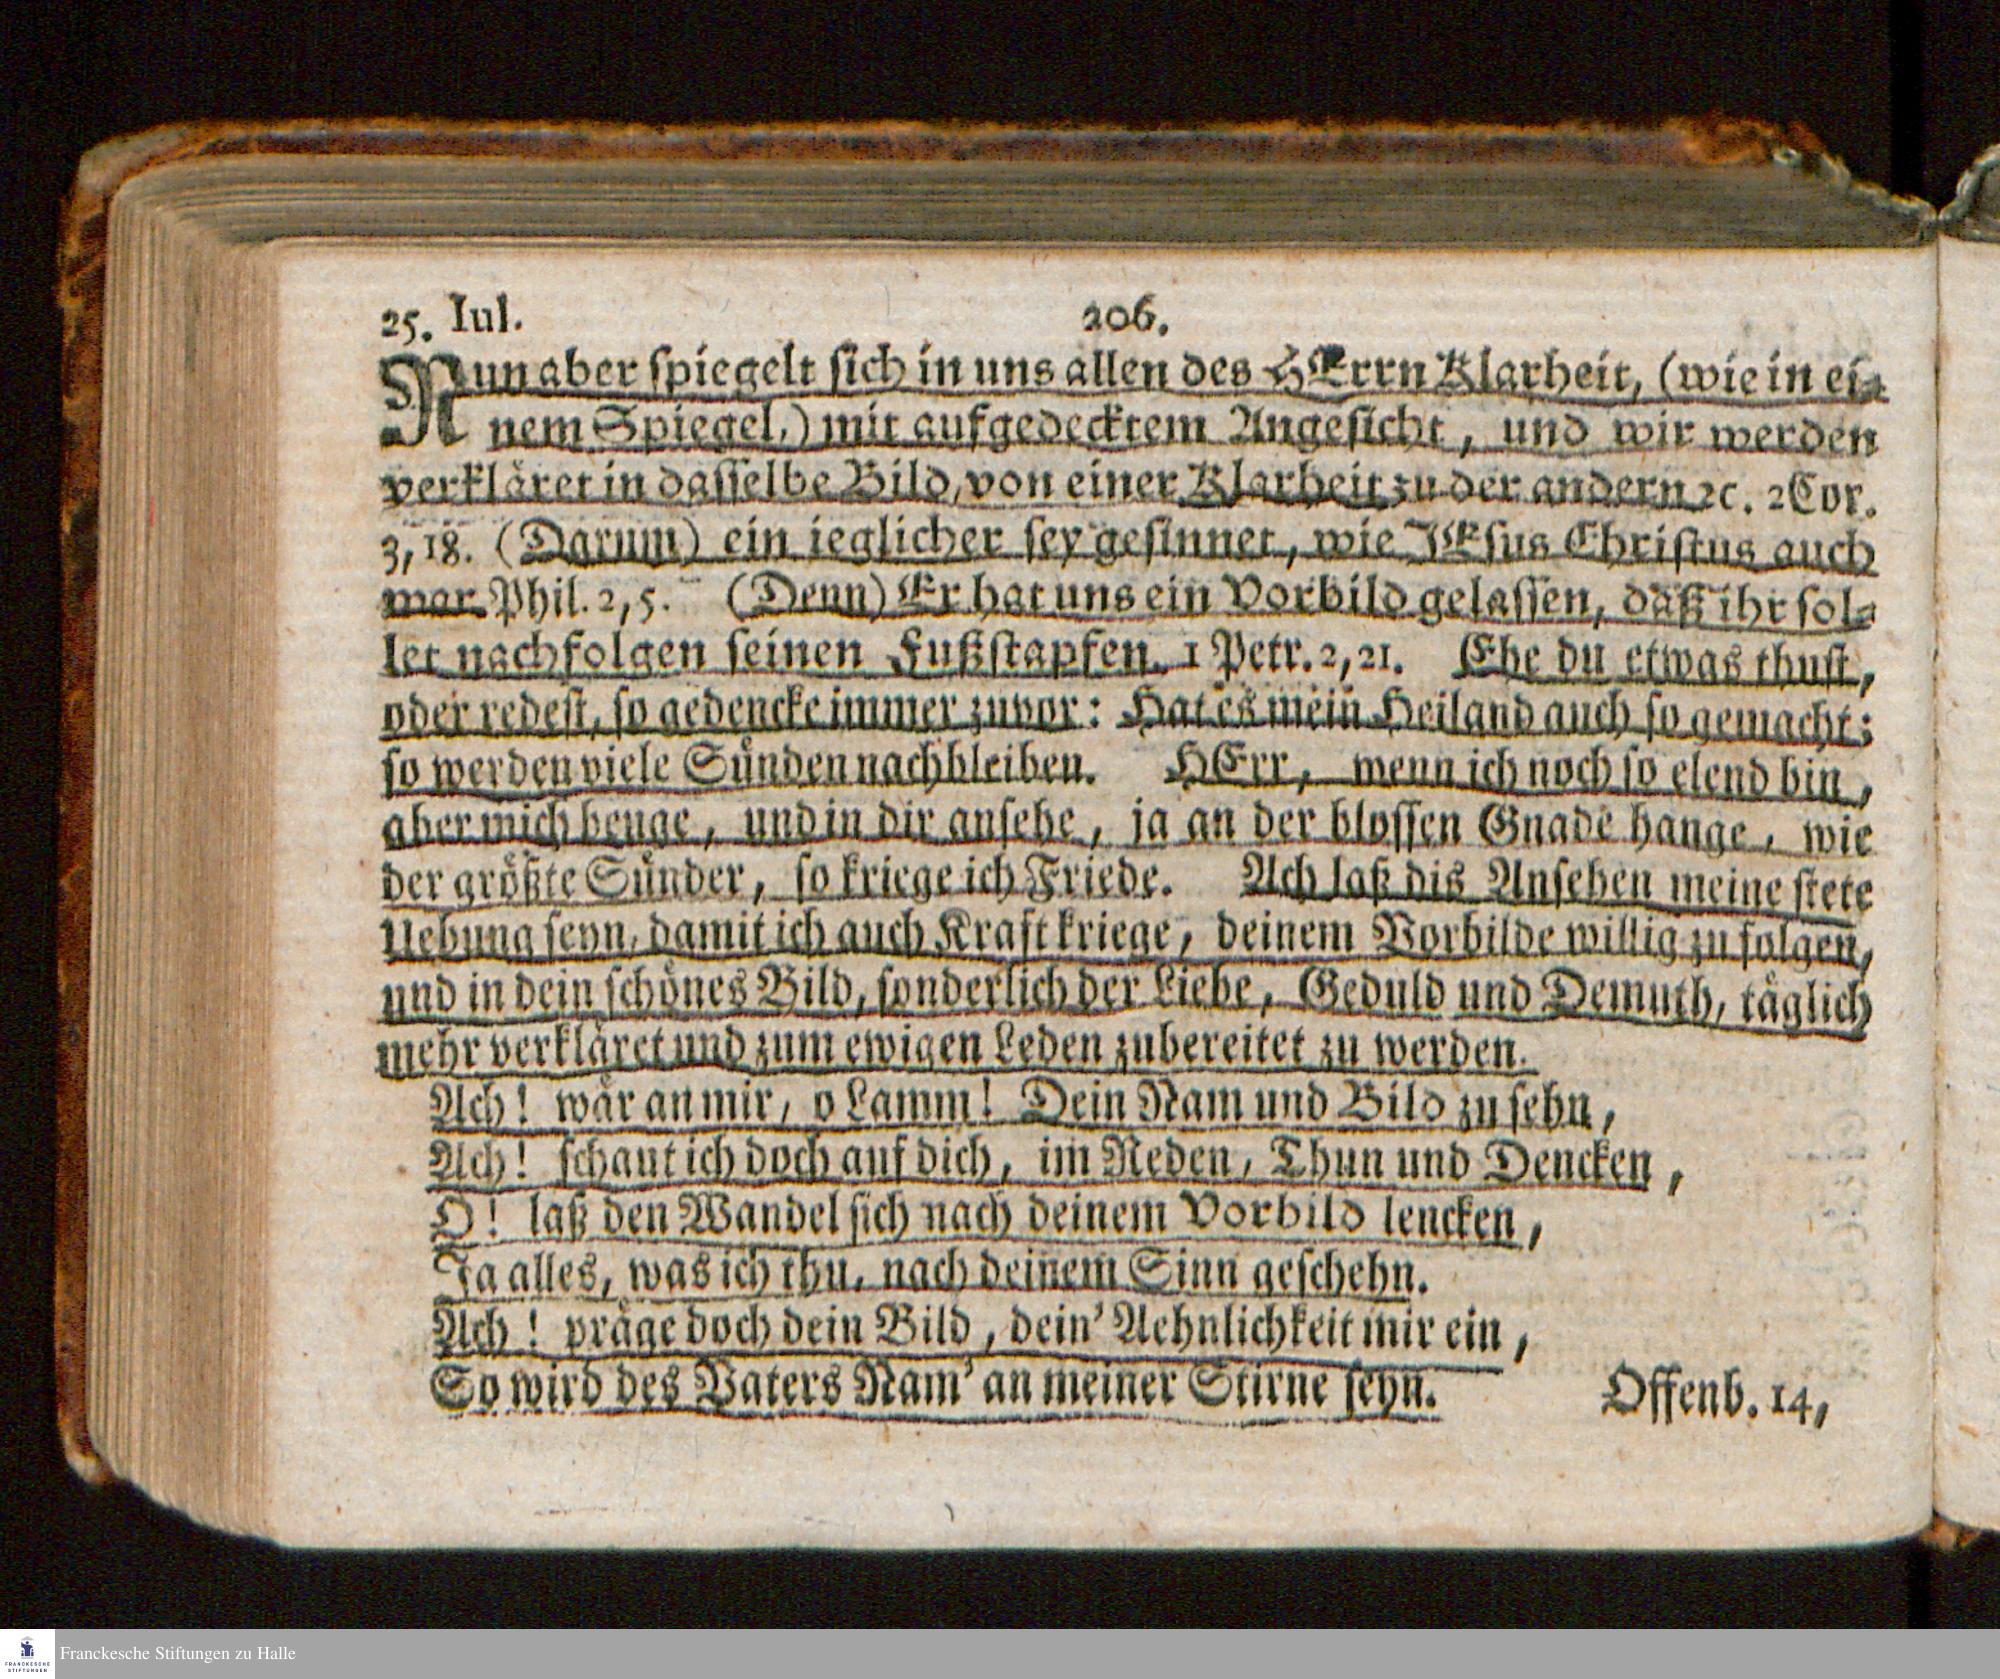 25. Iul. 206.
Nun aber spiegelt sich in uns allen des HErrn Klarheit, (wie in ei-
nem Spiegel,) mit aufgedecktem Angesicht, und wir werden
verkläret in dasselbe Bild, von einer Klarheit zu der andern ꝛc. 2 Cor.
3, 18. (Darum) ein ieglicher sey gesinnet, wie JEsus Christus auch
war Phil. 2, 5. (Denn) Er hat uns ein Vorbild gelassen, daß ihr sol-
let nachfolgen seinen Fußstapfen. 1 Petr. 2, 21. Ehe du etwas thust,
oder redest, so gedencke immer zuvor: Hat es mein Heiland auch so gemacht;
so werden viele Sünden nachbleiben. HErr, wenn ich noch so elend bin,
aber mich beuge, und in dir ansehe, ja an der blossen Gnade hange, wie
der größte Sünder, so kriege ich Friede. Ach laß dis Ansehen meine stete
Uebung seyn, damit ich auch Kraft kriege, deinem Vorbilde willig zu folgen,
und in dein schönes Bild, sonderlich der Liebe, Geduld und Demuth, täglich
mehr verkläret und zum ewigen Leben zubereitet zu werden.
Ach! wär an mir, o Lamm! Dein Nam und Bild zu sehn,
Ach! schaut ich doch auf dich, im Reden, Thun und Dencken,
O! laß den Wandel sich nach deinem Vorbild lencken,
Ja alles, was ich thu, nach deinem Sinn geschehn.
Ach! präge doch dein Bild, dein' Aehnlichkeit mir ein,
So wird des Vaters Nam' an meiner Stirne seyn. Offenb. 14,
Franckesche Stiftungen zu Halle
FRANCKESCHE
STIFTUNGEN